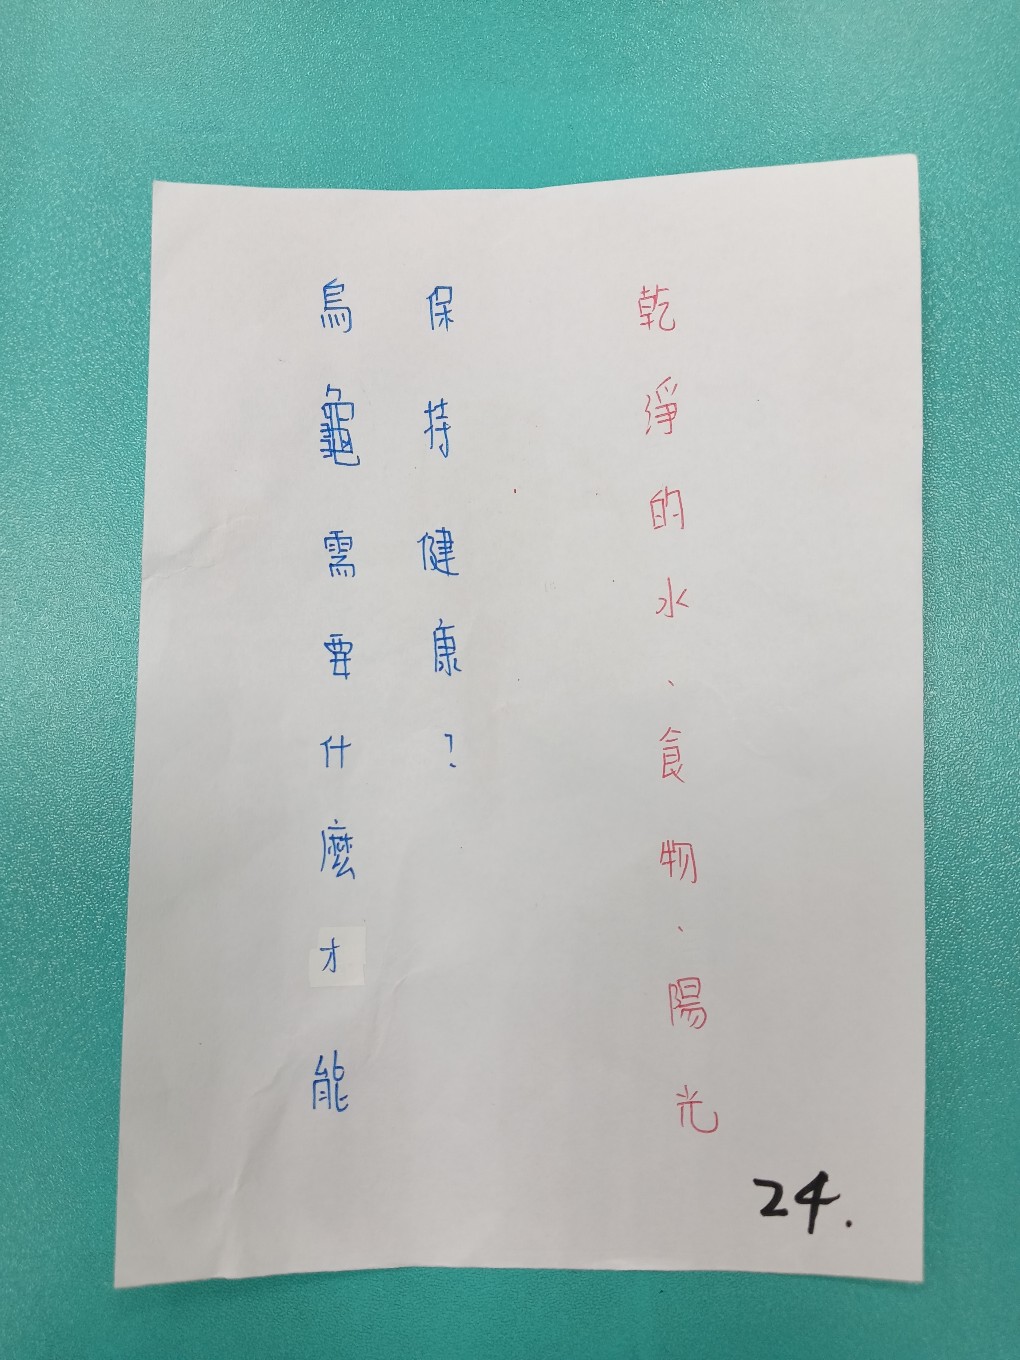 烏龜需要什麼才能
保持健康？
乾淨的水、食物、陽光
24.